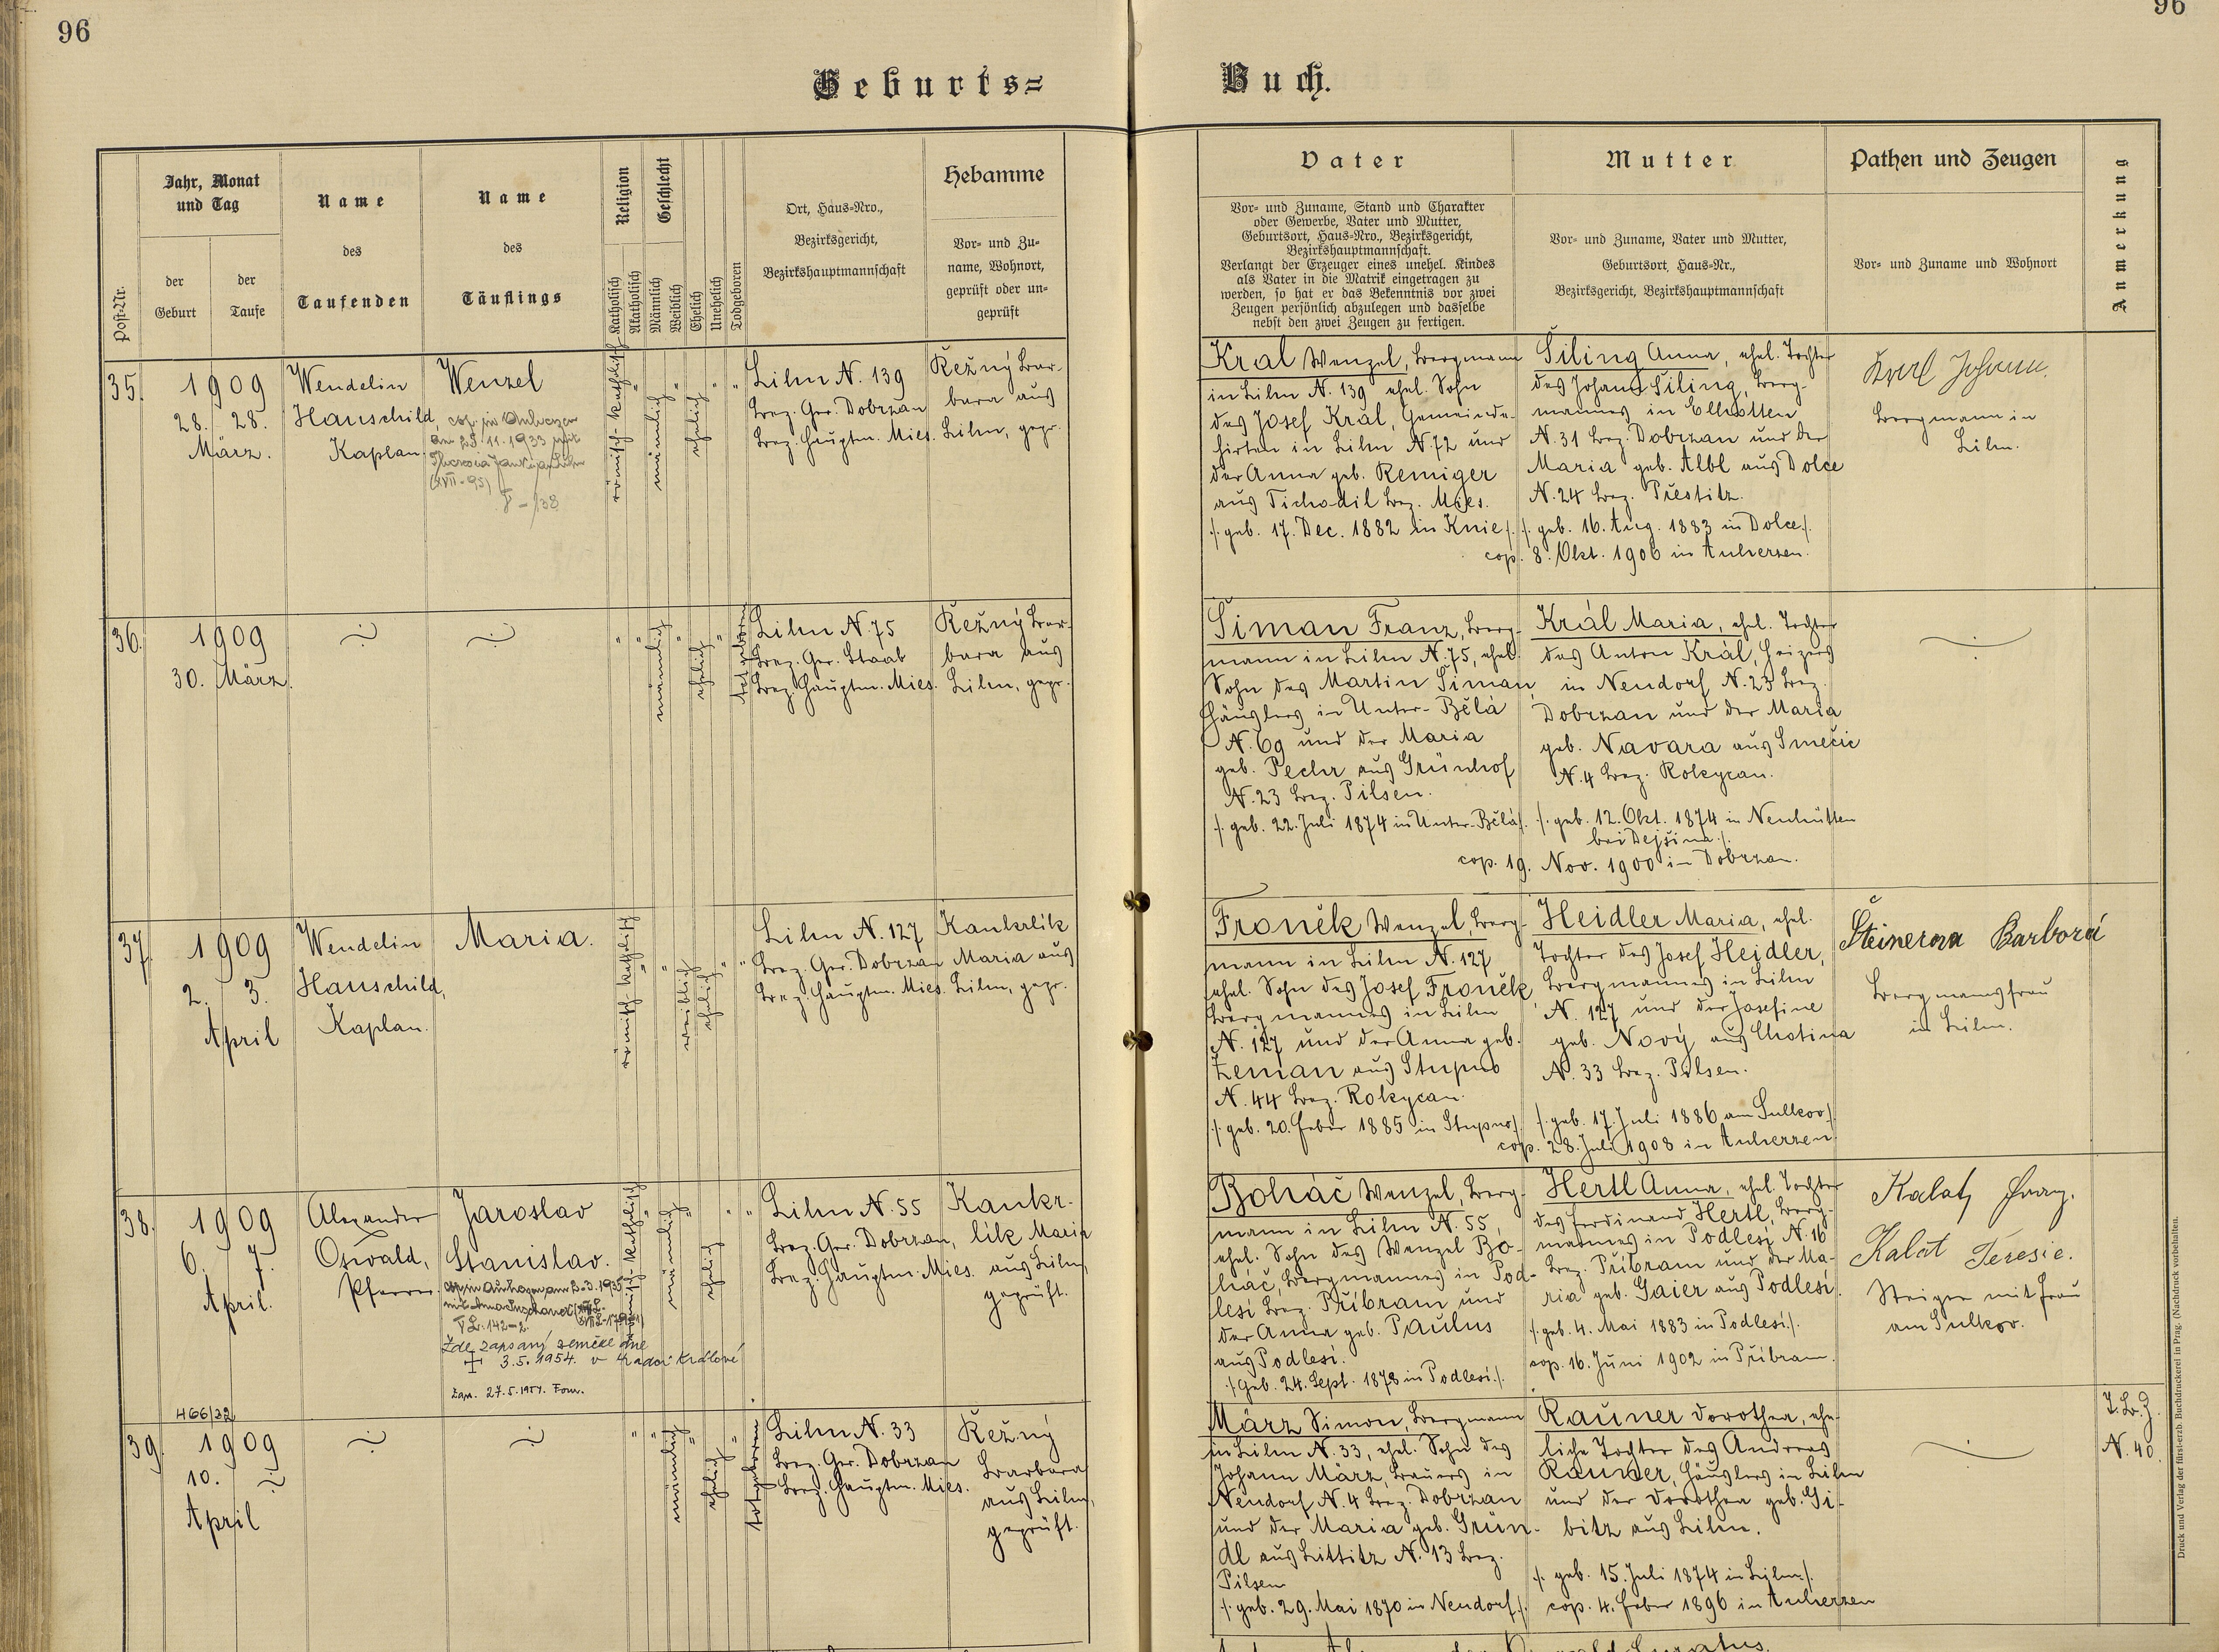 96
96
Geburts=
Buch.
Post-Nr.
Jahr, Monat
und Tag
der
Geburt
der
Taufe
Name
des
Taufenden
Name
des
Täuflings
Religion
Katholisch
Akatholisch
Geschlecht
Männlich
Weiblich
Ehelich
Unehelich
Todgeboren
Ort, Haus-Nro.,
Bezirksgericht,
Bezirkshauptmannschaft
Hebamme
Vor- und Zu-
name, Wohnort,
geprüft oder un-
geprüft
Vater
Vor- und Zuname, Stand und Charakter
oder Gewerbe, Vater und Mutter,
Geburtsort, Haus-Nro., Bezirksgericht,
Bezirkshauptmannschaft.
Verlangt der Erzeuger eines unehel. Kindes
als Vater in die Matrik eingetragen zu
werden, so hat er das Bekenntnis vor zwei
Zeugen persönlich abzulegen und dasselbe
nebst den zwei Zeugen zu fertigen.
Mutter
Vor- und Zuname, Vater und Mutter,
Geburtsort, Haus-Nr.,
Bezirksgericht, Bezirkshauptmannschaft
Pathen und Zeugen
Vor- und Zuname und Wohnort
Anmerkung
35.
1909
28. 28.
März.
Wendelin
Hauschild,
Kaplan.
Wenzel
cop. in Auherzen
am 25.11.1933 mit
(XVII-95)
römisch-katholisch
männlich
ehelich
Lihn N. 139
Bez. Ger. Dobrzan
Bez. Hauptm. Mies.
Režný Bar-
bara aus
Lihn, gepr.
Král Wenzel, Bergmann
in Lihn N. 139 ehel. Sohn
des Josef Král, Gemeinde-
hirten in Lihn N. 72 und
der Anna geb. Remiger
aus Tichodil Bez. Mies.
/: geb. 17. Dec. 1882 in Knie :/
Šiling Anna, ehel. Tochter
des Johann Šiling, Berg-
mannes in Ellhotten
N. 31 Bez. Dobrzan und der
Maria geb. Albl aus Dolce
N. 24 Bez. Přestitz.
/: geb. 16. Aug. 1883 in Dolce :/
cop. 8. Okt. 1906 in Auherzen.
Král Johann.
Bergmann in
Lihn.
36.
1909
30. März.
männlich
ehelich
totgeboren
Lihn N. 75
Bez. Ger. Staab
Bez. Hauptm. Mies.
Režný Bar-
bara aus
Lihn, gepr.
Šiman Franz, Berg-
mann in Lihn N. 75, ehel.
Sohn des Martin Šiman,
Häuslers in Unter-Bělá
N. 69 und der Maria
geb. Pechr aus Grünhof
N. 23 Bez. Pilsen.
/: geb. 22. Juli 1874 in Unter-Bělá :/
Král Maria, ehel. Tochter
des Anton Král, Heizers
in Neudorf N. 23 Bez.
Dobrzan und der Maria
geb. Navara aus Smečic
N. 4 Bez. Rokycan.
/: geb. 12. Okt. 1874 in Neuhütten
bei Dejšina :/
cop. 19. Nov. 1900 in Dobrzan.
37.
1909
2. 3.
April
Wendelin
Hauschild,
Kaplan.
Maria.
römisch-katholisch
weiblich
ehelich
Lihn N. 127
Bez. Ger. Dobrzan
Bez. Hauptm. Mies.
Kankrlík
Maria aus
Lihn, gepr.
Froněk Wenzel, Berg-
mann in Lihn N. 127
ehel. Sohn des Josef Froněk,
Bergmannes in Lihn
N. 127 und der Anna geb.
Zeman aus Stupno
N. 44 Bez. Rokycan.
/: geb. 20. Feber 1885 in Stupno :/
Heidler Maria, ehel.
Tochter des Josef Heidler,
Bergmannes in Lihn
N. 127 und der Josefine
geb. Nový aus Chotina
N. 33 Bez. Pilsen.
/: geb. 17. Juli 1886 am Sulkov :/
cop. 28. Juli 1908 in Auherzen.
Šteinerova Barbora
Bergmannsfrau
in Lihn.
38.
1909
6. 7.
April.
Alexander
Oswald,
Pfarrer.
Jaroslav
Stanislav.
Zde zapsaný zemřel dne
+ 3.5.1954. v Hradci Králové
Zap. 27.5.1954.
römisch-katholisch
männlich
ehelich
Lihn N. 55
Bez. Ger. Dobrzan,
Bez. Hauptm. Mies.
Kankr-
lík Maria
aus Lihn,
geprüft.
Boháč Wenzel, Berg-
mann in Lihn N. 55,
ehel. Sohn des Wenzel Bo-
háč, Bergmannes in Pod-
lesí Bez. Příbram und
der Anna geb. Paulus
aus Podlesí.
/: geb. 24. Sept. 1878 in Podlesí :/
Hertl Anna, ehel. Tochter
des Ferdinand Hertl, Berg-
mannes in Podlesí N. 16
Bez. Příbram und der Ma-
ria geb. Gaier aus Podlesí.
/: geb. 4. Mai 1883 in Podlesí :/
cop. 16. Juni 1902 in Příbram.
Kalat Franz.
Kalat Teresie.
Steiger mit Frau
am Sulkov.
466/32
39.
1909
10.
April
männlich
ehelich
totgeboren
Lihn N. 33
Bez. Ger. Dobrzan
Bez. Hauptm. Mies.
Režný
Barbara
aus Lihn,
geprüft.
März Simon, Bergmann
in Lihn N. 33, ehel. Sohn des
Johann März, Bauers in
Neudorf N. 4 Bez. Dobrzan
und der Maria geb. Grün-
dl aus Littitz N. 13 Bez.
Pilsen
/: geb. 29. Mai 1870 in Neudorf :/
Rauner Dorothea, ehe-
liche Tochter des Andreas
Rauner, Häuslers in Lihn
und der Dorothea geb. Gi-
bitz aus Lihn.
/: geb. 15. Juli 1874 in Lihn :/
cop. 4. Feber 1896 in Auherzen
T. B. Z.
N. 40.
Druck und Verlag der fürst-erzb. Buchdruckerei in Prag. (Nachdruck vorbehalten.